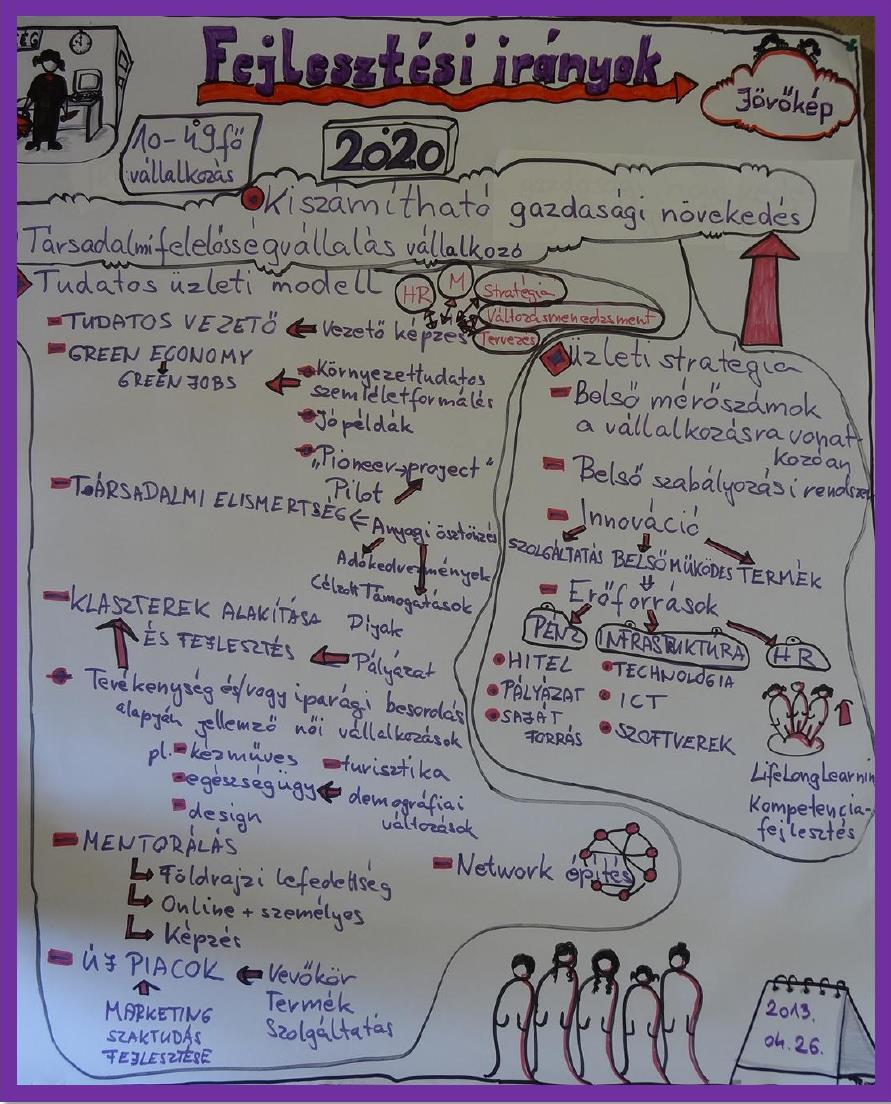 Fejlesztési irányok
Jövőkép
10-49 fő
vállalkozás
2020
Kiszámítható gazdasági növekedés
Társadalmi felelősségvállalás vállalkozó
Tudatos üzleti modell
HR
M
Stratégia
Változásmenedzsment
Tervezés
- TUDATOS VEZETŐ
Vezető képzés
- GREEN ECONOMY
GREEN JOBS
Környezettudatos
szemléletformálás
Jó példák
"Pioneer→project"
Pilot
- TÁRSADALMI ELISMERTSÉG
Anyagi ösztönzés
Adókedvezmények
Célzott Támogatások
Díjak
- KLASZTEREK ALAKÍTÁSA
ÉS FEJLESZTÉS
Pályázat
Tevékenység és/vagy iparági besorolás
alapján jellemző női vállalkozások
pl. - kézműves
- turisztika
- egészségügy
demográfiai
változások
- design
- MENTORÁLÁS
Földrajzi lefedettség
Online + személyes
Képzés
- Network építés
- ÚJ PIACOK
Vevőkör
Termék
Szolgáltatás
MARKETING
SZAKTUDÁS
FEJLESZTÉSE
Üzleti stratégia
- Belső mérőszámok
a vállalkozásra vonat-
kozóan
- Belső szabályozási rendszer
- Innováció
SZOLGÁLTATÁS
BELSŐ MŰKÖDÉS
TERMÉK
- Erőforrások
PÉNZ
INFRASTRUKTURA
HR
HITEL
PÁLYÁZAT
SAJÁT
FORRÁS
TECHNOLÓGIA
ICT
SZOFTVEREK
LifeLongLearnin
Kompetencia-
fejlesztés
2013.
04.26.